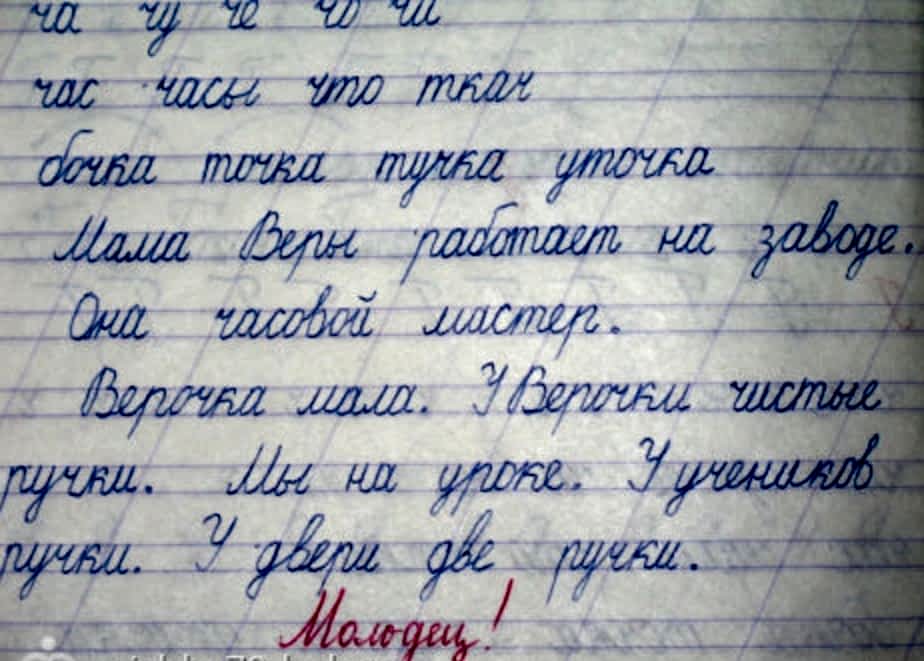 ча чу че чо чи
час часы что ткач
бочка точка тучка уточка
Мама Веры работает на заводе.
Она часовой мастер.
Верочка мала. У Верочки чистые
ручки. Мы на уроке. У учеников
ручки. У двери две ручки.
Молодец!